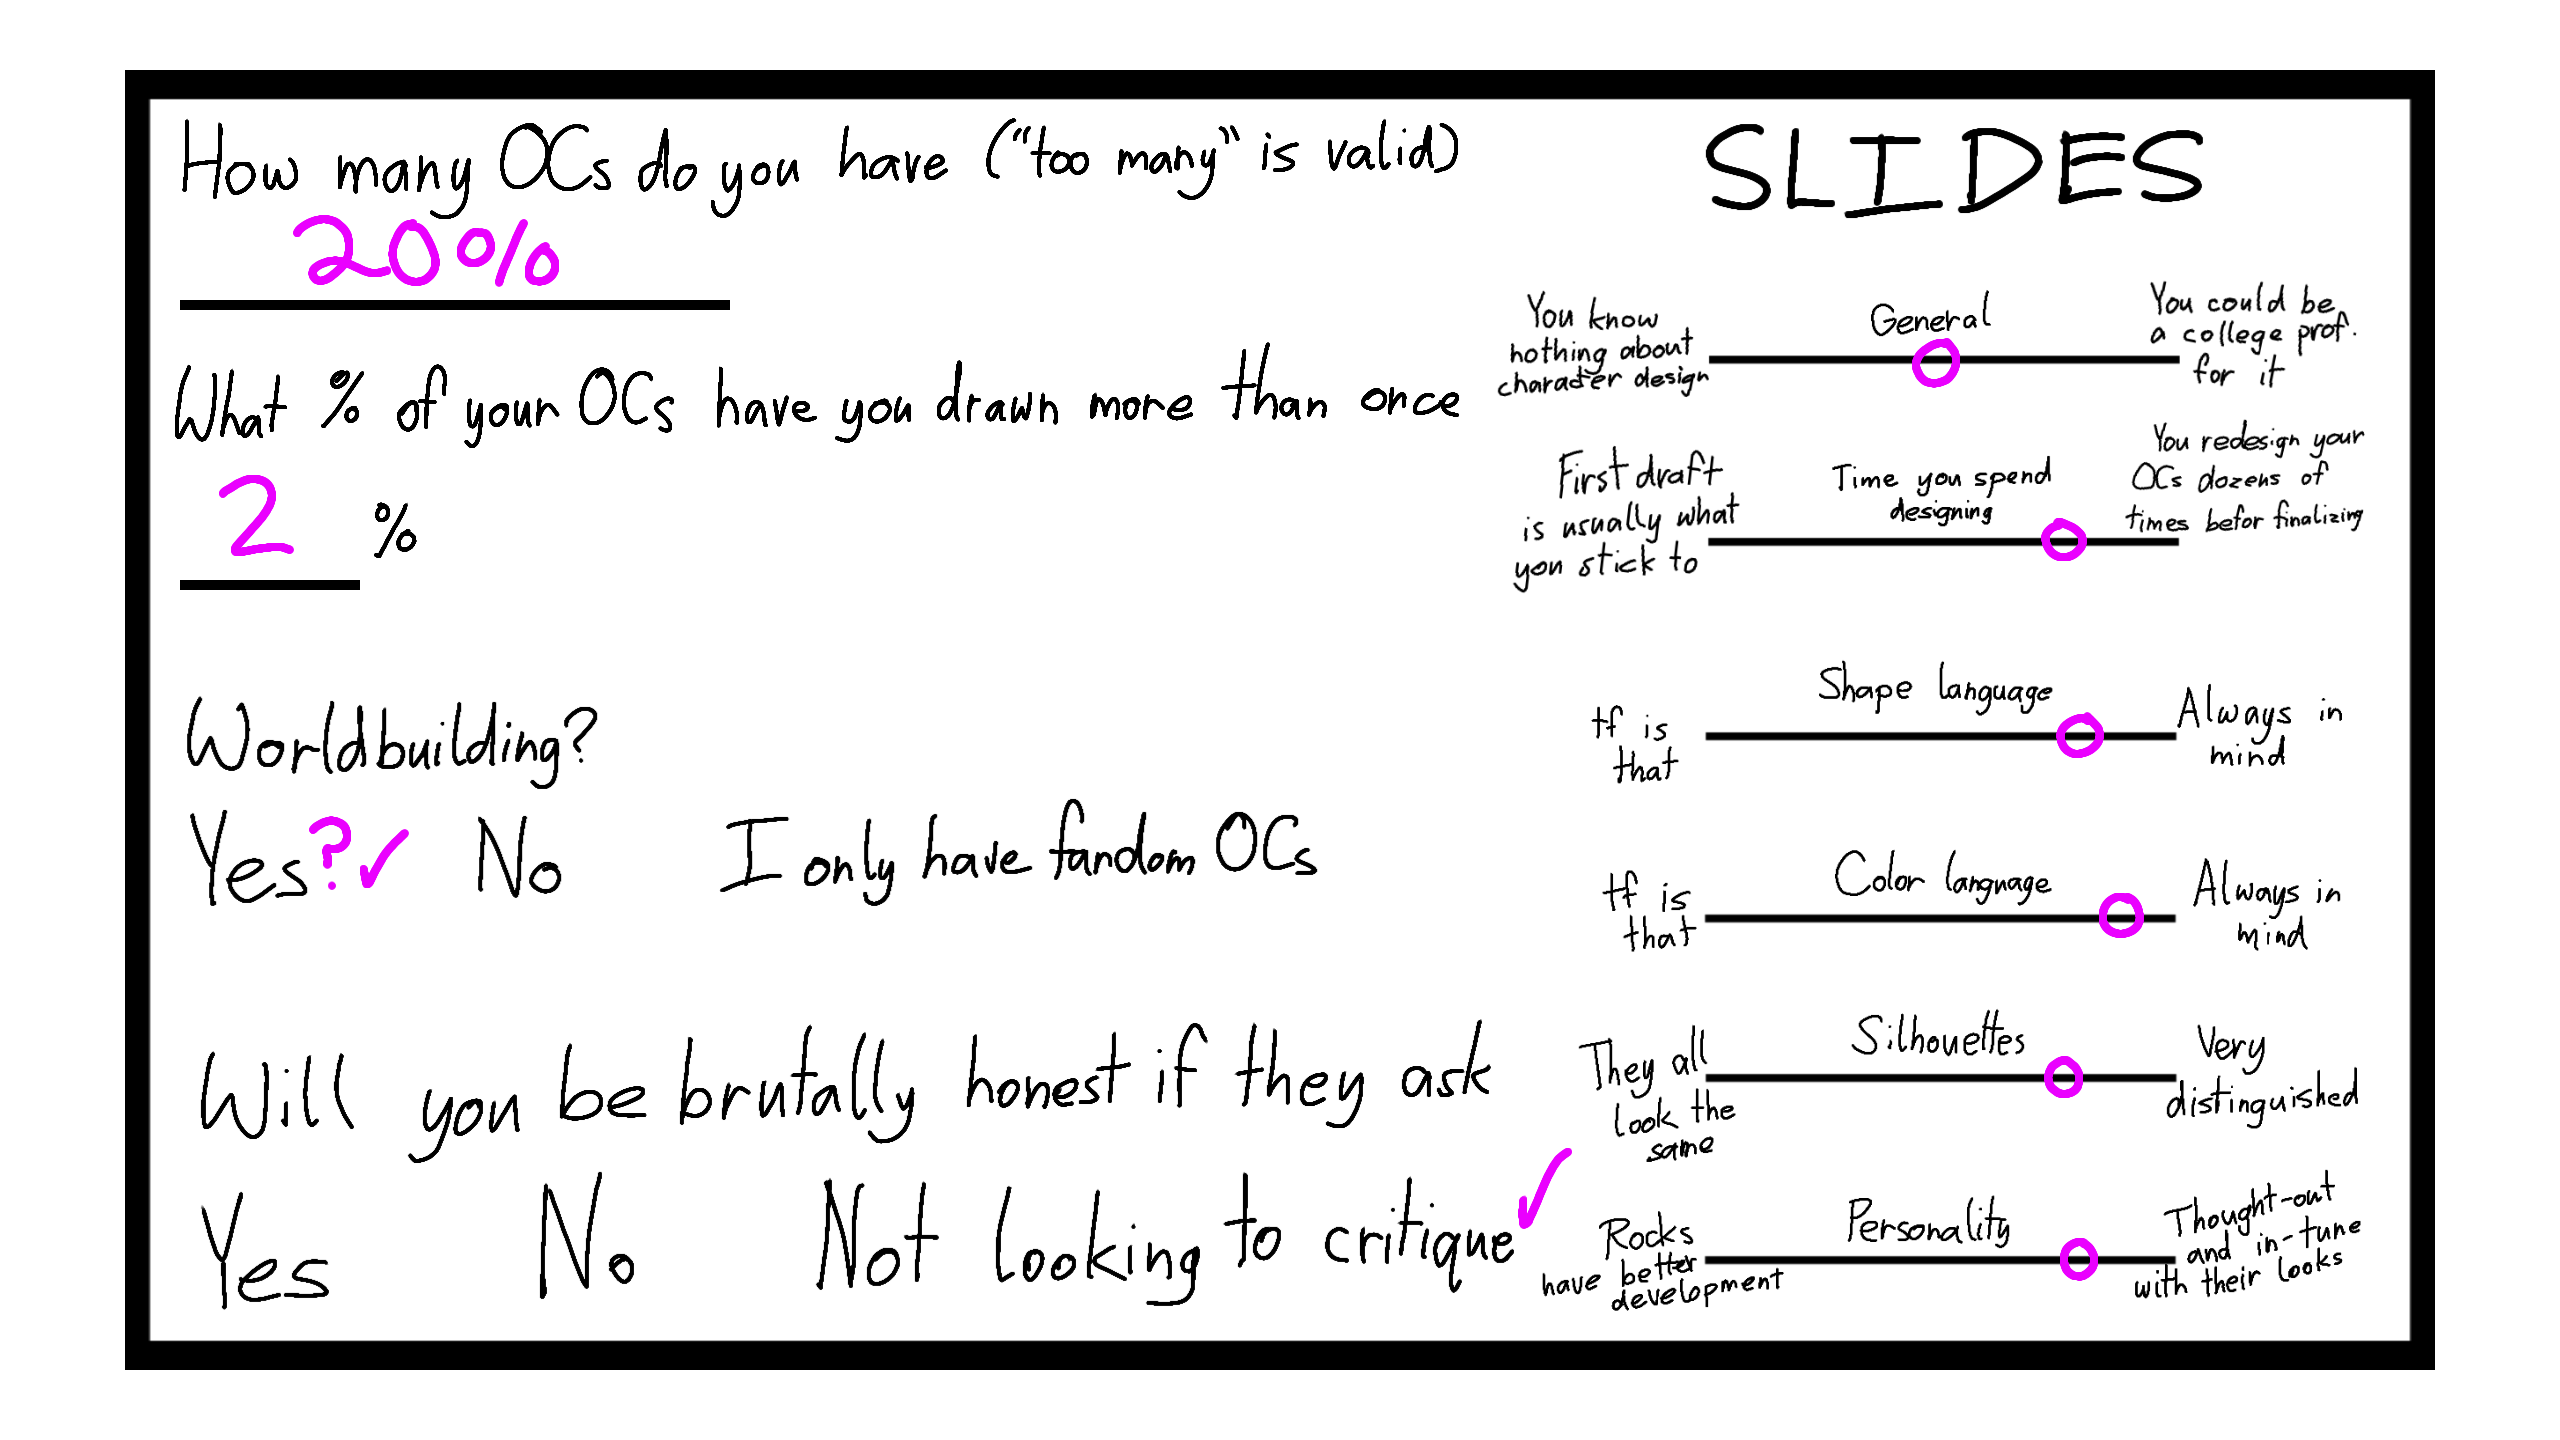 How many OCs do you have ("too many" is valid)
20%
What % of your OCs have you drawn more than once
2 %
Worldbuilding?
Yes ?✓ No I only have fandom OCs
Will you be brutally honest if they ask
Yes No Not looking to critique ✓
SLIDES
General
You know
nothing about
character design
You could be
a college prof.
for it
Time you spend
designing
First draft
is usually what
you stick to
You redesign your
OCs dozens of
times befor finalizing
Shape language
tf is
that
Always in
mind
Color language
tf is
that
Always in
mind
Silhouettes
They all
look the
same
Very
distinguished
Personality
Rocks
have better
development
Thought-out
and in-tune
with their looks